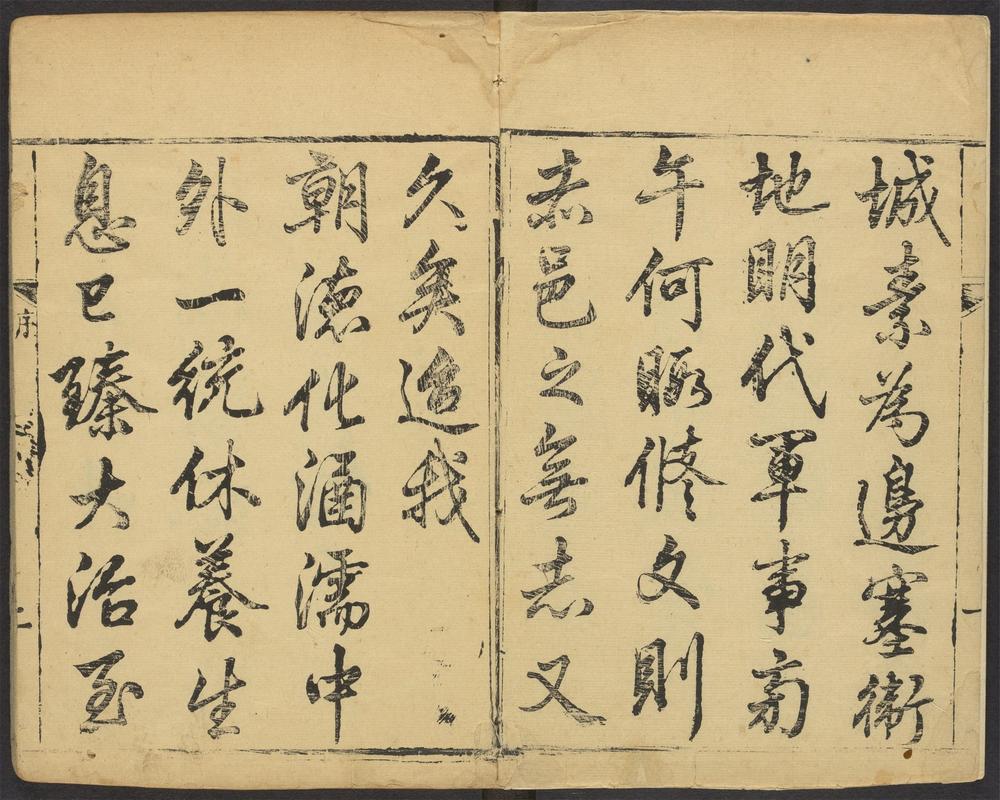 城素為邊塞衝
地明代軍事旁
午何暇修文則
赤邑之無志又
久矣迨我
朝德化涵濡中
外一統休養生
息已臻大治至
序
二